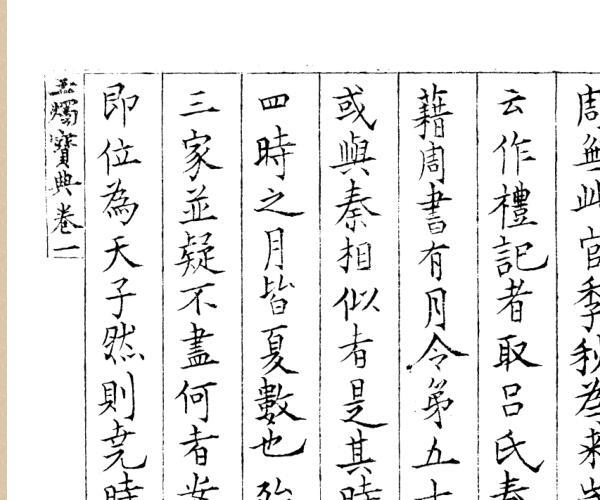 周無此官季秋為來
云作禮記者取呂氏春
藉周書有月令第五十
或與秦相似者是其時
四時之月皆夏數也殆
三家並疑不盡何者案
即位為天子然則堯時
玉燭寶典卷一